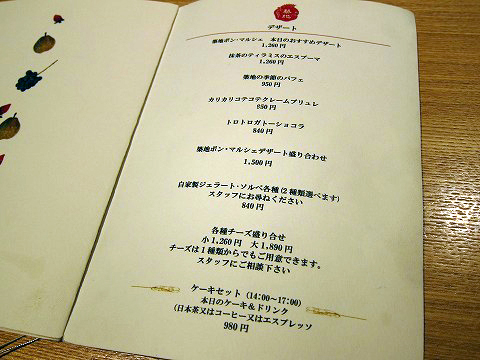 築地
デザート
築地ボン・マルシェ 本日のおすすめデザート
1,260円
抹茶のティラミスのエスプーマ
1,260円
築地の季節のパフェ
950円
カリカリコテコテクレームブリュレ
850円
トロトロガトーショコラ
840円
築地ボン・マルシェデザート盛り合わせ
1,500円
自家製ジェラート・ソルベ各種(2種類選べます)
スタッフにお尋ねください
840円
各種チーズ盛り合せ
小1,260円 大1,890円
チーズは1種類からでもご用意できます。
スタッフにご相談下さい
ケーキセット (14:00～17:00)
本日のケーキ&ドリンク
(日本茶又はコーヒー又はエスプレッソ
980円